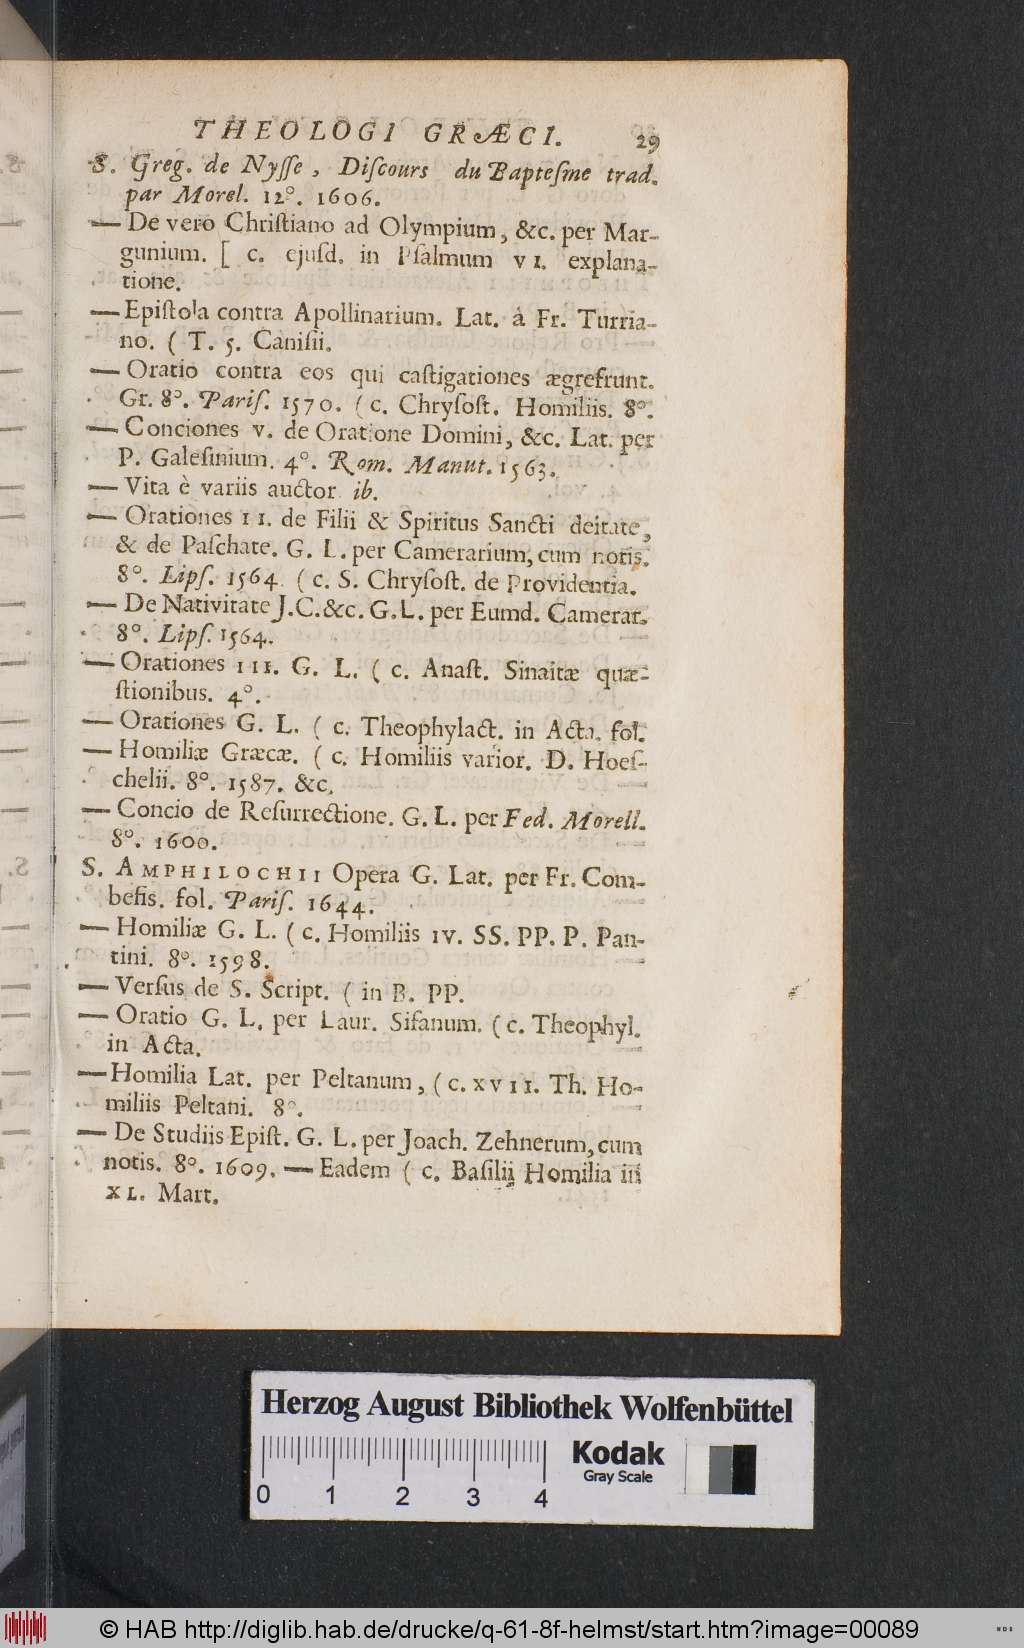 THEOLOGI GRÆCI. 29
S. Greg. de Nyſſe, Diſcours du Bapteſme trad.
par Morel. 12°. 1606.
— De vero Chriſtiano ad Olympium, &c. per Mar-
gunium. [ c. ejuſd. in Pſalmum VI. explana-
tione.
— Epiſtola contra Apollinarium. Lat. à Fr. Turria-
no. ( T. 5. Caniſii.
— Oratio contra eos qui caſtigationes ægrefrunt.
Gr. 8°. Pariſ. 1570. ( c. Chryſoſt. Homiliis. 8°.
— Conciones V. de Oratione Domini, &c. Lat. per
P. Galeſinium. 4°. Rom. Manut. 1563.
— Vita è variis auctor ib.
— Orationes II. de Filii & Spiritus Sancti deitate,
& de Paſchate. G. L. per Camerarium, cum notis.
8°. Lipſ. 1564 ( c. S. Chryſoſt. de Providentia.
— De Nativitate J.C.&c. G.L. per Eumd. Camerar.
8°. Lipſ. 1564.
— Orationes III. G. L. ( c. Anaſt. Sinaitæ quæ-
ſtionibus. 4°.
— Orationes G. L. ( c. Theophylact. in Acta. fol.
— Homiliæ Græcæ. ( c. Homiliis varior. D. Hoeſ-
chelii. 8°. 1587. &c.
— Concio de Reſurrectione. G. L. per Fed. Morell.
8°. 1600.
S. AMPHILOCHII Opera G. Lat. per Fr. Com-
befis. fol. Pariſ. 1644.
— Homiliæ G. L. ( c. Homiliis IV. SS. PP. P. Pan-
tini. 8°. 1598.
— Verſus de S. Script. ( in B. PP.
— Oratio G. L. per Laur. Sifanum. ( c. Theophyl.
in Acta.
— Homilia Lat. per Peltanum, ( c. XVII. Th. Ho-
miliis Peltani. 8°.
— De Studiis Epiſt. G. L. per Joach. Zehnerum, cum
notis. 8°. 1609. — Eadem ( c. Baſilii Homilia in
XL. Mart.
Herzog August Bibliothek Wolfenbüttel
Kodak
Gray Scale
0 1 2 3 4
© HAB http://diglib.hab.de/drucke/q-61-8f-helmst/start.htm?image=00089